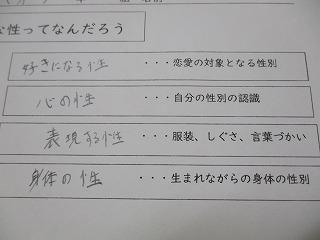 な性ってなんだろう
好きになる性 ・・・恋愛の対象となる性別
心の性 ・・・自分の性別の認識
表現する性 ・・・服装、しぐさ、言葉づかい
身体の性 ・・・生まれながらの身体の性別